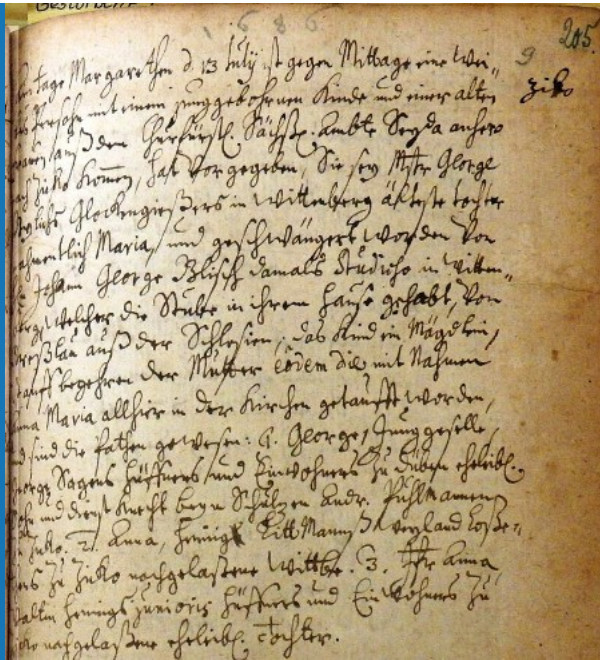 1686
205.
9
Ziko
tage Margarethen d. 13 July ist gegen Mittage eine Wei-
Person mit einem junggebohrnen Kinde und einer alten
auß dem Churfürstl. Sächß. Ambte Seyda anhero
Ziko kommen, hat vorgegeben, Sie sey Mstr George
Glockengießers in Wittenberg älteste tochter
nahmentlich Maria, und geschwängert worden von
Johann George Blisch damals Studioso in Witten-
berg, welcher die Stube in ihrem Hause gehabt, von
Breßlau auß der Schlesien, das Kind ein Mägdlein,
auff begehren der Mutter eodem die mit Nahmen
Anna Maria allhier in der Kirchen getaufft worden,
und sind die Pathen gewesen: 1. George, Junggeselle,
George Sagens Hüffners und Einwohners zu Düben eheleibl.
Sohn und dienst Knecht beym Schulzen Andr. Puhlmannen
Ziko. 2. Anna, Hennigs Wittbe
zu Ziko nachgelaßene Wittbe. 3. Jfr Anna
Hennigs junioris Hüffners und Einwohners zu
Ziko nachgelaßene eheleibl. Tochter.